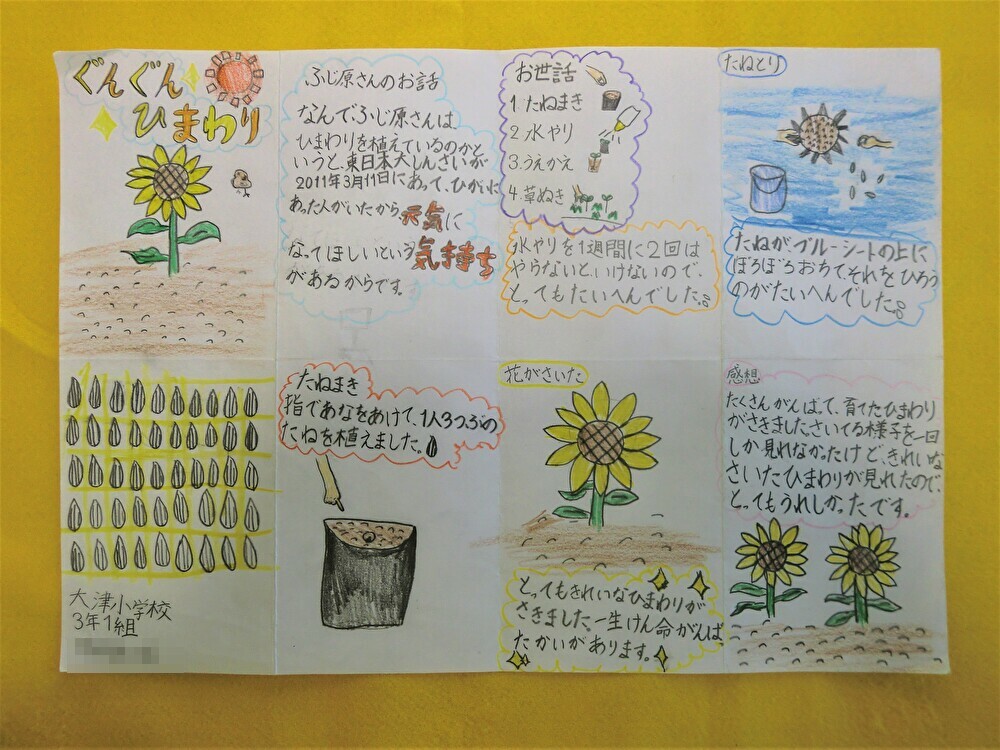 ぐんぐん
ひまわり
ふじ原さんのお話
なんでふじ原さんは、
ひまわりを植えているのかと
いうと、東日本大しんさいが
2011年3月11日にあって、ひがいに
あった人がいたから元気に
なってほしいという気持ち
があるからです。
お世話
1.たねまき
2.水やり
3.うえかえ
4.草ぬき
水やりを1週間に2回は
やらないといけないので、
とってもたいへんでした。
たねとり
たねがブルーシートの上に
ぽろぽろおちて、それをひろう
のがたいへんでした。
大津小学校
3年1組
たねまき
指であなをあけて、1人3つぶの
たねを植えました。
花がさいた
とってもきれいなひまわりが
さきました一生けん命がんば、
たかいがあります。
感想
たくさんがんばって、育てたひまわり
がさきました。さいてる様子を一回
しか見れなかったけど、きれいな
さいたひまわりが見れたので、
とってもうれしかったです。